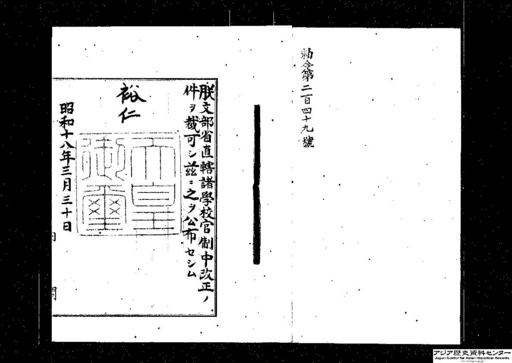 勅令第二百四十九號
朕文部省直轄諸學校官制中改正ノ
件ヲ裁可シ茲ニ之ヲ公布セシム
裕仁
天皇御璽
昭和十八年三月三十日
内閣
アジア歴史資料センター
Japan Center for Asian Historical Records